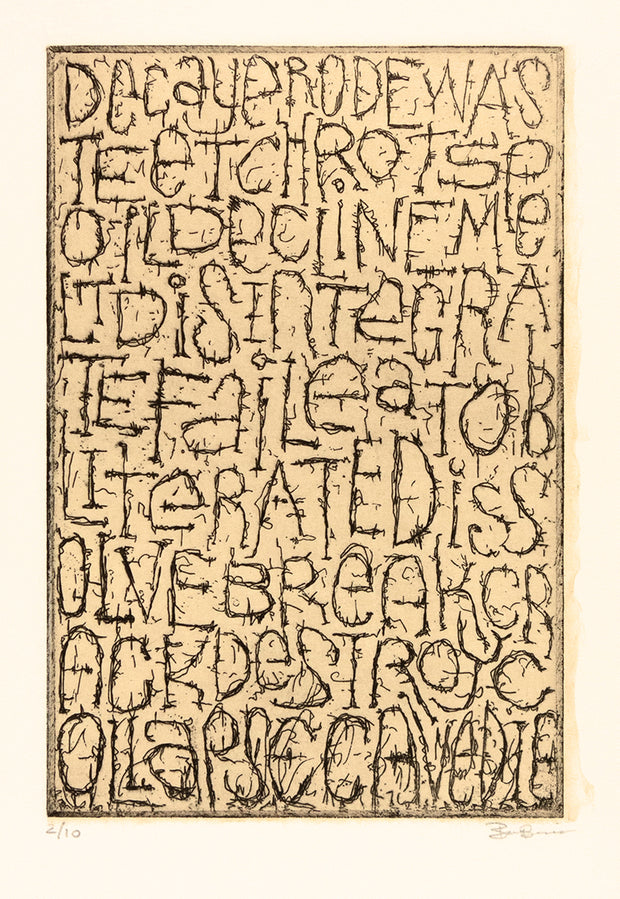 DecayeRODEWAS
TEeTCHROTSP
OiLDecLiNEMe
LTDiSinTeGRA
TEFaiLeaTOB
LiTeRATEDiSS
OLVEBReaKCR
ACKDeSTROyC
OLLaPSeCAVeDIE
2/10